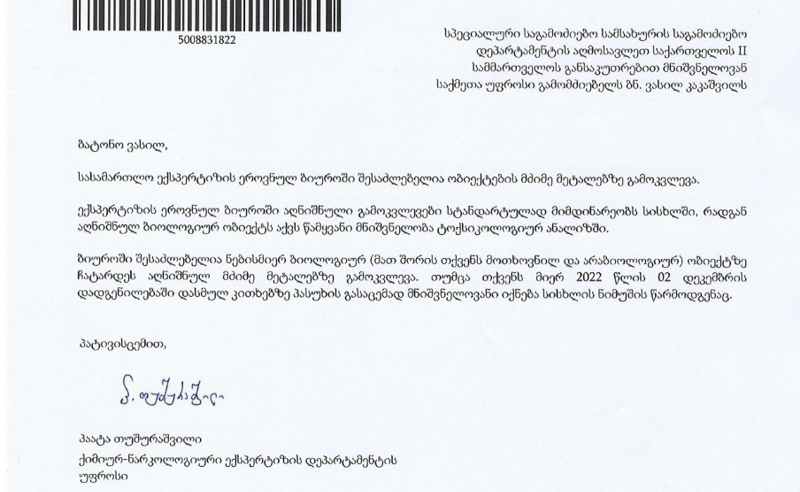 5008831822
სპეციალური საგამოძიებო სამსახურის საგამოძიებო
დეპარტამენტის აღმოსავლეთ საქართველოს II
სამმართველოს განსაკუთრებით მნიშვნელოვან
საქმეთა უფროსი გამომძიებელს ბნ. ვასილ კაკაშვილს
ბატონო ვასილ,
სასამართლო ექსპერტიზის ეროვნულ ბიუროში შესაძლებელია ობიექტების მძიმე მეტალებზე გამოკვლევა.
ექსპერტიზის ეროვნულ ბიუროში აღნიშნული გამოკვლევები სტანდარტულად მიმდინარეობს სისხლში, რადგან
აღნიშნულ ბიოლოგიურ ობიექტს აქვს წამყვანი მნიშვნელობა ტოქსიკოლოგიურ ანალიზში.
ბიუროში შესაძლებელია ნებისმიერ ბიოლოგიურ (მათ შორის თქვენს მოთხოვნილ და არაბიოლოგიურ) ობიექტზე
ჩატარდეს აღნიშნულ მძიმე მეტალებზე გამოკვლევა. თუმცა თქვენს მიერ 2022 წლის 02 დეკემბრის
დადგენილებაში დასმულ კითხებზე პასუხის გასაცემად მნიშვნელოვანი იქნება სისხლის ნიმუშის წარმოდგენაც.
პატივისცემით,
პაატა თუშურაშვილი
ქიმიურ-ნარკოლოგიური ექსპერტიზის დეპარტამენტის
უფროსი